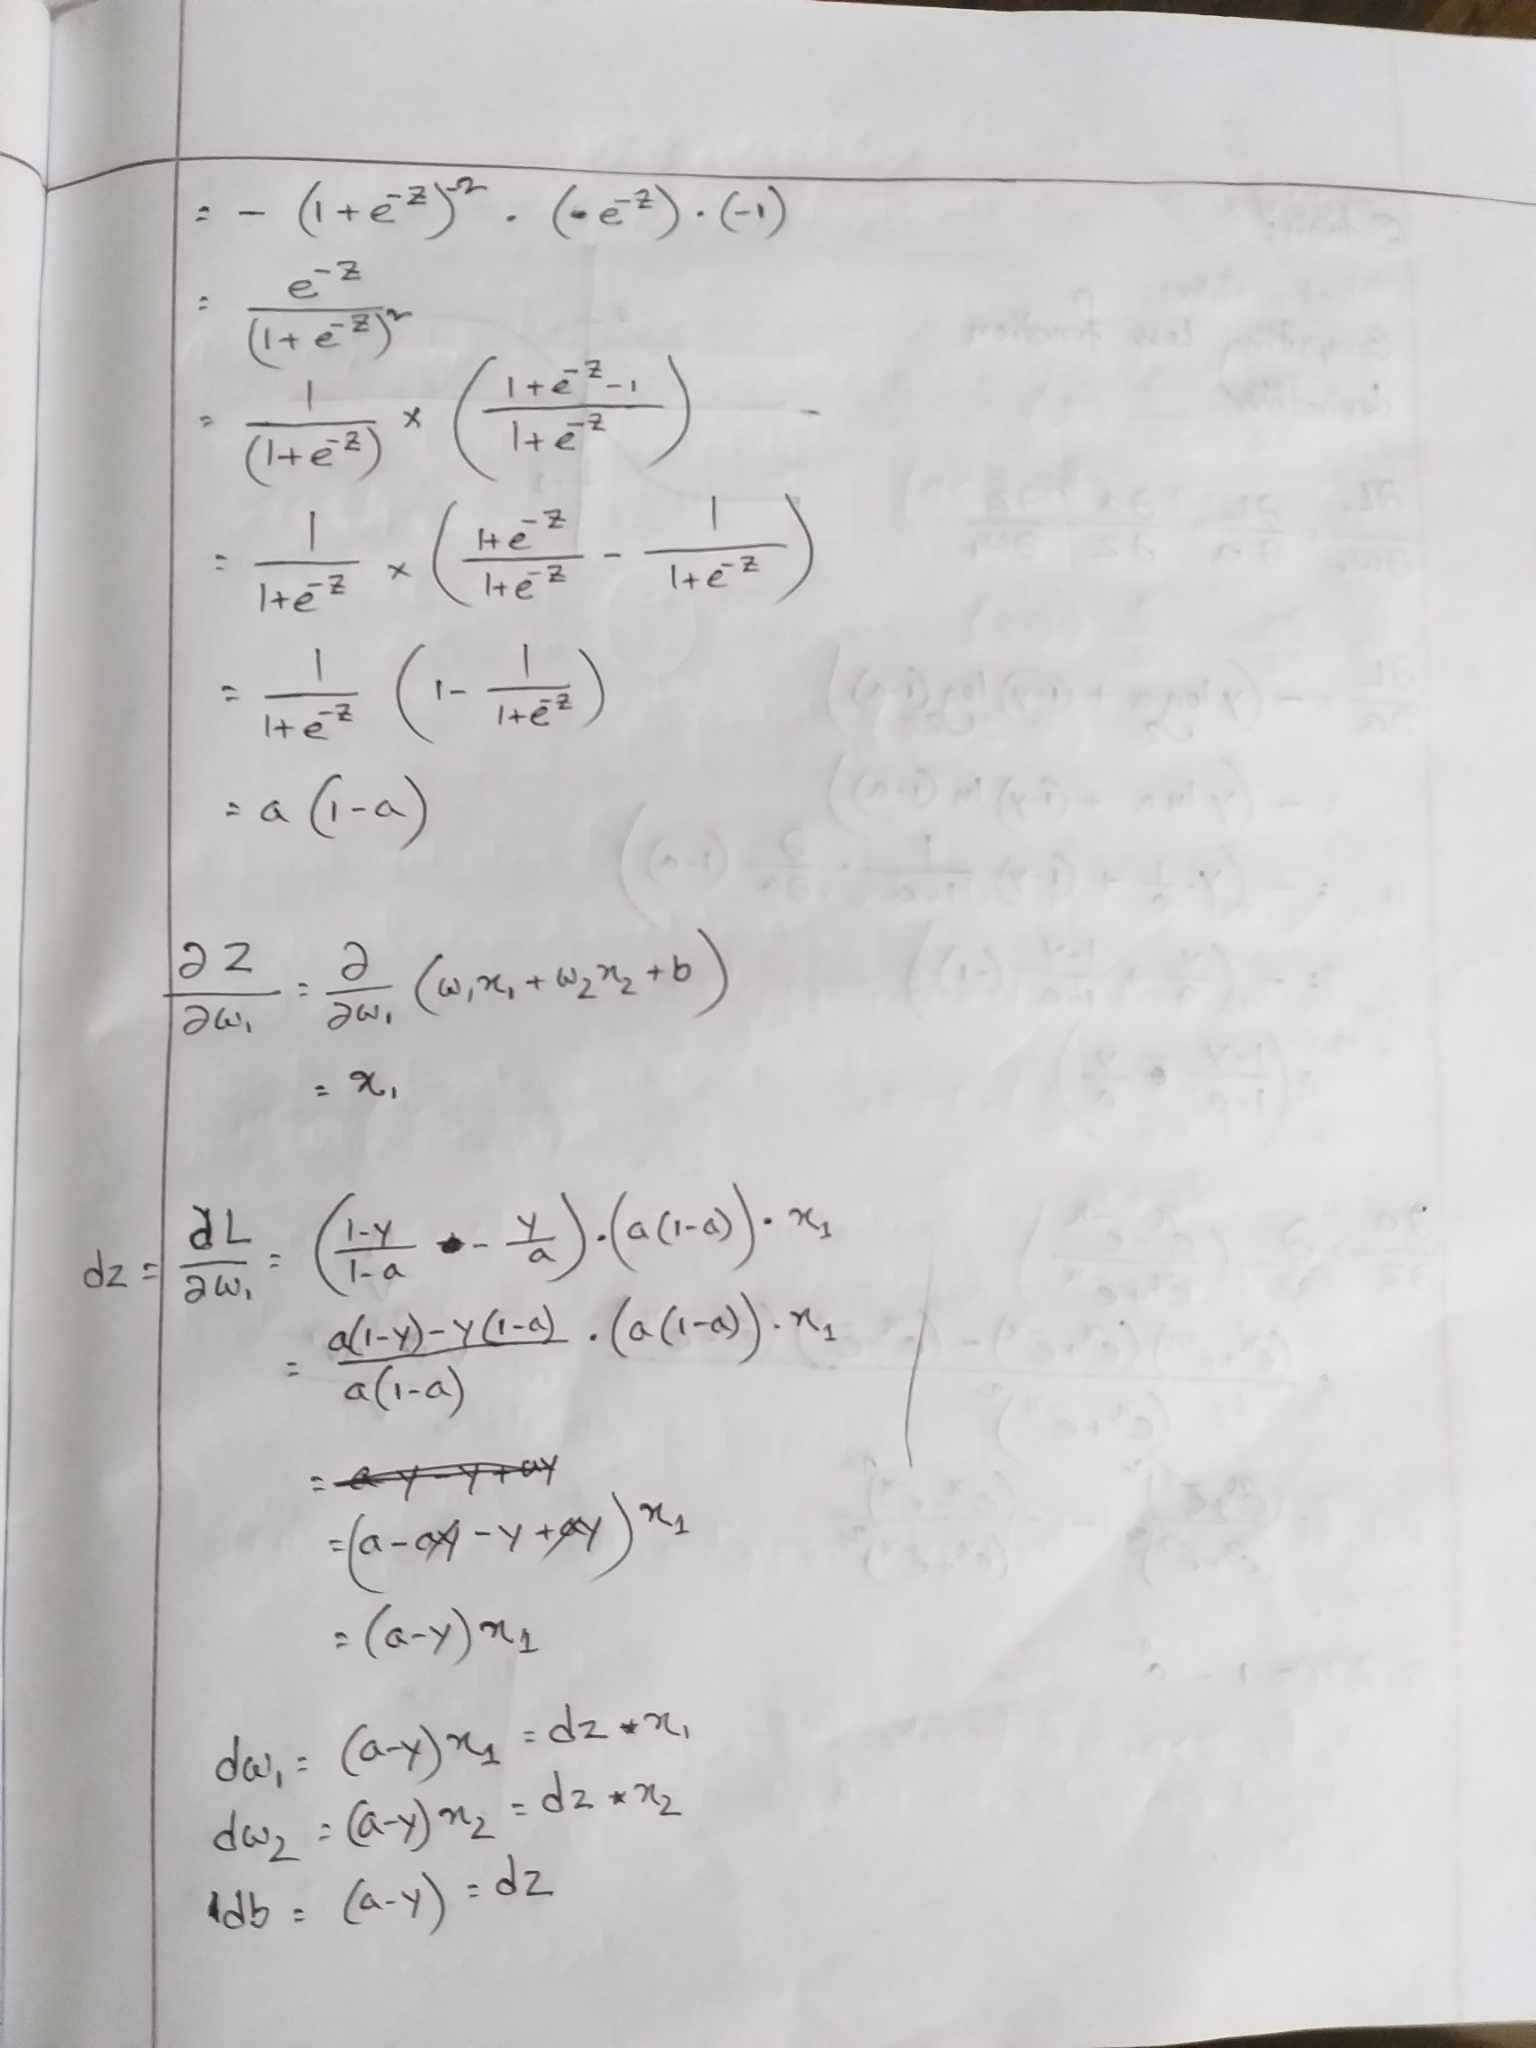 = - (1+e^-z)^-2 . (-e^-z) . (-1)
= e^-z / (1+e^-z)^2
= 1/(1+e^-z) × ((1+e^-z-1)/(1+e^-z))
= 1/(1+e^-z) × ((1+e^-z)/(1+e^-z) - 1/(1+e^-z))
= 1/(1+e^-z) (1 - 1/(1+e^-z))
= a (1-a)
∂Z/∂ω₁ = ∂/∂ω₁ (ω₁x₁ + ω₂x₂ + b)
= x₁
dz = ∂L/∂ω₁ = ((1-y)/(1-a) - y/a) . (a(1-a)) . x₁
= (a(1-y) - y(1-a))/(a(1-a)) . (a(1-a)) . x₁
= a-y-y+ay
= (a - ay - y + ay) x₁
= (a-y) x₁
dω₁ = (a-y) x₁ = dz * x₁
dω₂ = (a-y) x₂ = dz * x₂
db = (a-y) = dz